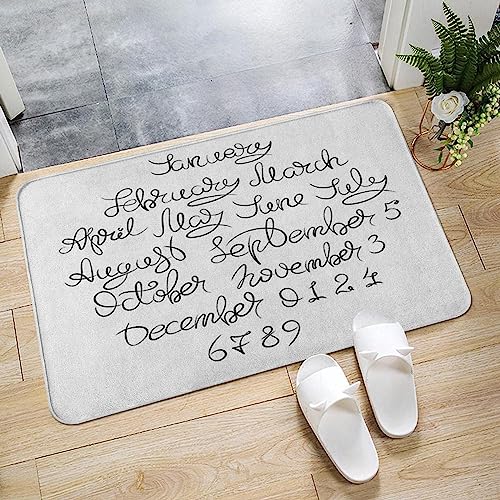 January
February March
April May June July
August September 5
October November 3
December 0 1 2 4
6 7 8 9